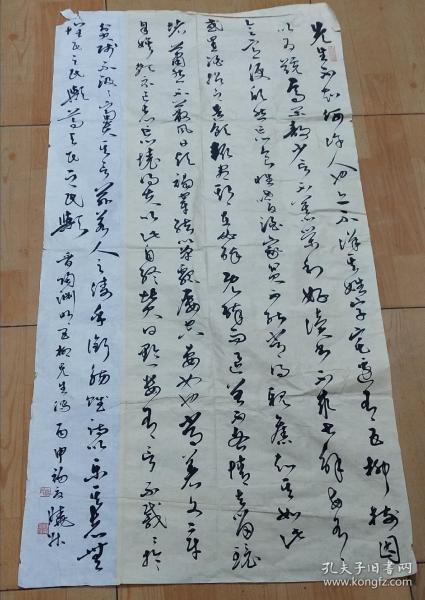 先生不知何许人也亦不详其姓字宅边有五柳树因
以为号焉闲静少言不慕荣利好读书不求甚解每有
会意便欣然忘食性嗜酒家贫不能常得亲旧知其如此
或置酒招之造饮辄尽期在必醉既醉而退曾不吝情去留环
堵萧然不蔽风日短褐穿结箪瓢屡空晏如也常著文章
自娱颇示己志忘怀得失以此自终赞曰黔娄有言不戚戚于
贫贱不汲汲于富贵其言兹若人之俦乎衔觞赋诗以乐其志无
怀氏之民欤葛天氏之民欤
晋陶渊明五柳先生传 丙申
孔夫子旧书网
www.kongfz.com